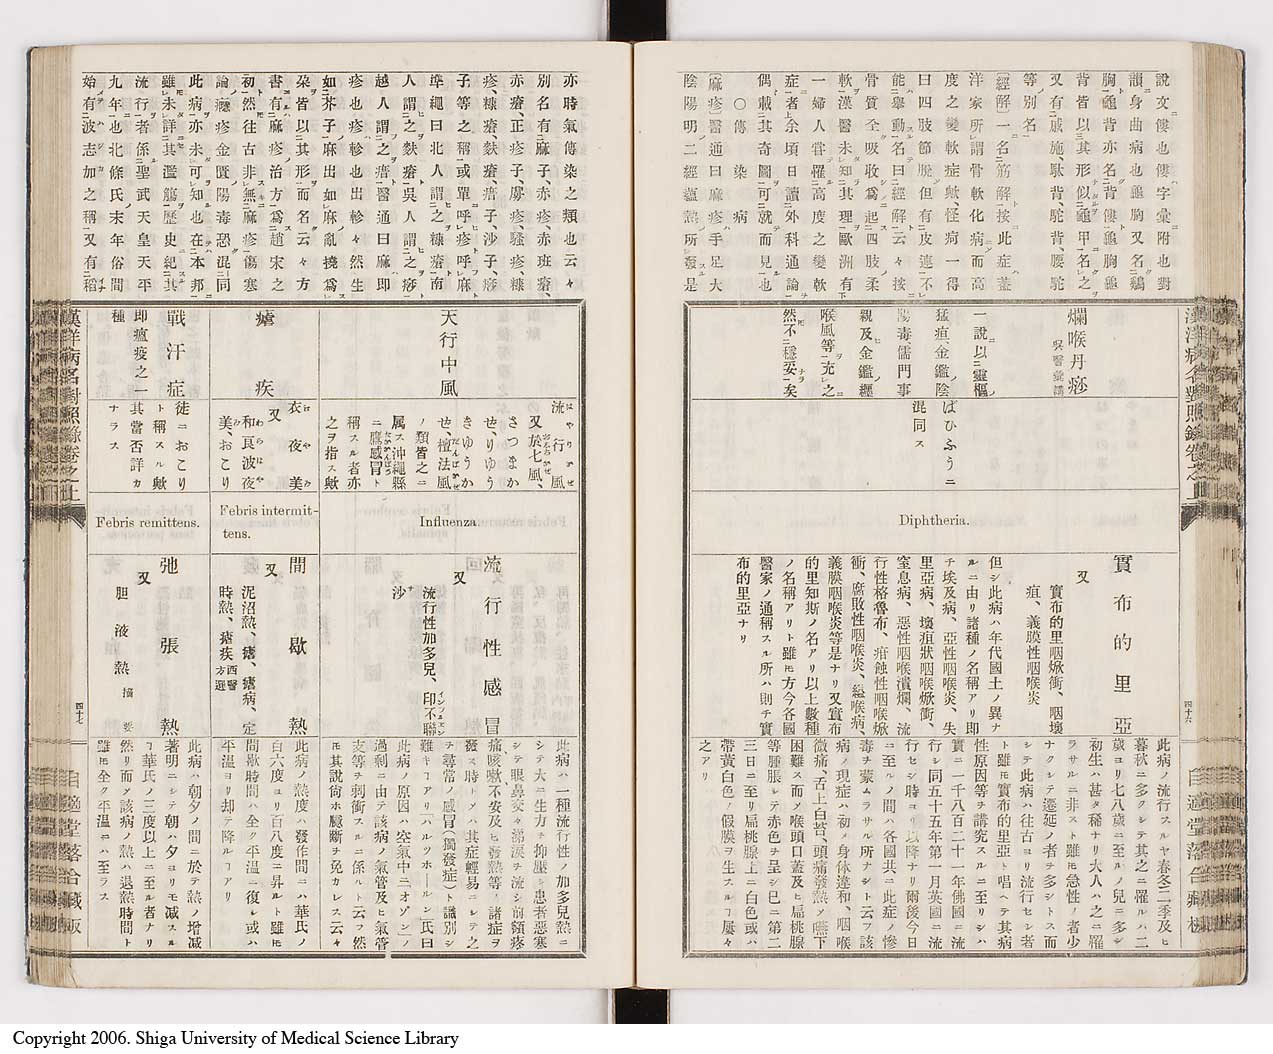 説文僂也僂字彙ニ附也對
韻ニ身曲病也龜胸又名鷄
胸ト龜背亦名背僂ト龜胸龜
背皆以其形似龜甲ニ名之ヲ
又有戚施、駄背、駝背、腰駝
等ノ別名
〔經解〕一名筋解ト按此症ハ蓋
洋家所謂骨軟化病ニシテ而高
度之變軟症歟、怪病一得
曰四肢節脱但有皮連不レ
能擧動名テ曰經解ト云々按
骨質全吸收爲起ス四肢ノ柔
軟ヲ漢醫未知其理歐洲有
一婦人嘗罹ル高度之變軟
症ニ者上余頃日讀外科通論ヲ
偶載其奇圖可就而見也
○傳染病
〔麻疹〕醫通曰麻疹ハ手足大
陰陽明ノ二經蘊熱ノ所發スル是
爛喉丹痧
吳醫彙講
一説ニ以テ靈樞ノ
猛疽、金鑑ノ陰
陽毒、儒門事
親及金鑑ノ纏
喉風等ヲ充レ之ニ
然モ不ニ穩妥ナラ矣
ばひふうニ
混同ス
Diphtheria.
實布的里亞
又
實布的里焮衝、咽壞
疽、義膜性咽喉炎
但シ此病ハ年代國土ノ異ナ
ルニ由リ諸種ノ名稱アリ即
チ埃及病、亞性咽喉炎、失
里亞病、壞疽狀咽喉焮衝、
窒息病、惡性咽喉潰爛、流
行性格魯布、疳蝕性咽喉焮
衝、腐敗性咽喉炎、縊喉病、
義膜咽喉炎等是ナリ又實布
的里知斯ノ名アリ以上數種
ノ名稱アリト雖モ方今各國
醫家ノ通稱スル所ハ則チ實
布的里亞ナリ
此病ノ流行スルヤ春冬二季及ヒ
暮秋ニ多クシテ其之ニ罹ルハ二
歲ヨリ七八歲ニ至ルノ兒ニ多シ
初生ハ甚タ稀ナリ大人ハ之ニ罹
ラサルニ非スト雖モ急性ノ者少
ナクシテ遷延ノ者多シトス而
シテ此病ハ往古ヨリ流行セシ者
ト雖モ實布的里亞ト唱ヘテ其病
性原因等ヲ講究スルニ至リシハ
實ニ一千八百二十一年佛國ニ流
行シ同五十五年第一月英國ニ流
行セシ時ヨリ以降ナリ爾後今日
ニ至ルノ間ハ各國共ニ此症ノ慘
毒ヲ蒙ムラサル所ナシト云フ該
病ノ現症ハ初メ身体違和、咽喉
微痛、舌上白苔、頭痛發熱メ嚥下
困難ス而メ喉頭口蓋及ヒ扁桃腺
等腫脹シテ赤色ヲ呈シ巳ニ第二
三日ニ至リ扁桃腺上ニ白色或ハ
帶黃白色ノ假膜ヲ生スルヿ屢々
之アリ
漢洋病名對照錄卷之上
四十六
自適堂落合藏板
亦時氣傳染之類也云々
別名有麻子、赤疹、赤班瘡、
赤瘡、正疹子、膚疹、騷疹、糠
疹、糠瘡、麩瘡、瘄子、沙子、痧
子等之稱或單ニ呼疹ト呼麻ト
準繩曰北人ハ謂之ヲ糠瘡ト南
人ハ謂之ヲ麩瘡ト吳人ハ謂之ヲ痧ト
越人ハ謂之ヲ瘄ト醫通曰麻ハ即
疹也疹ハ軫也出軫々然生
如芥子ノ麻出如麻ノ亂撓爲
朶ヲ皆以其形ヲ而名ク云々方
書ニ有麻疹治方爲趙宋之
初ト然往古非無麻疹傷寒
論ノ癮疹金匱ノ陽毒恐混同
此病ヲ亦未可知也在本邦ニ
雖未詳其濫觴ヲ歷史ニ紀其
流行ヲ者係聖武天皇天平
九年ニ也北條氏ノ末年俗間
始有波志加之稱又有稻
天行中風
流行風
又於七風、
さつまか
せ、りゆう
きゆうか
せ、檀法風
ノ類皆之ニ
属ス沖繩縣
ニ鷹感冒ト
稱スル者亦
之ヲ指ス歟
Influenza.
流行性感冒
又
流行性加多兒、印不聯
沙
此病ハ一種流行性ノ加多兒熱ニ
シテ大ニ生力ヲ抑壓シ患者惡寒
シテ眼鼻交々涕涙ヲ流シ前頭疼
痛咳嗽不安及ヒ發熱等ノ諸症ヲ
發ス時トメハ其症輕易ニシテ之
ヲ尋常ノ感冒(獨發症)ト識別シ
難キヿアリ「ハルツホールン」氏曰
此病ノ原因ハ空氣中ニ「オゾン」ノ
過剰ニ由テ該病ノ氣管及ヒ氣管
支等ヲ刺衝スルニ係ルト云フ然
モ其說尙ホ臆斷ヲ免カレス云々
瘧疾
衣夜美
又
和良波夜
美、おこり
Febris intermit-
tens.
間歇熱
又
泥沼熱、瘧、瘧病、定
時熱、瘧疾西醫方選
此病ノ熱度ハ發作間ニハ華氏ノ
百六度ヨリ百八度ニ昇ルト雖モ
間歇時間ハ全ク平温ニ復シ或ハ
平温ヨリ却テ降ルヿアリ
戰汗症
即瘟疫之一
種
徒ニおこり
ト稱スル歟
其當否詳カ
ナラス
Febris remittens.
弛張熱
又
胆液熱摘要
此病ハ朝夕ノ間ニ於テ熱ノ増減
著明ニシテ朝ハ夕ヨリモ減スル
ヿ華氏ノ三度以上ニ至ル者ナリ
然リ而メ該病ノ熱ハ退熱時間ト
雖モ全ク平温ニハ至ラス
漢洋病名對照錄卷之上
四十七
自適堂落合藏板
Copyright 2006. Shiga University of Medical Science Library